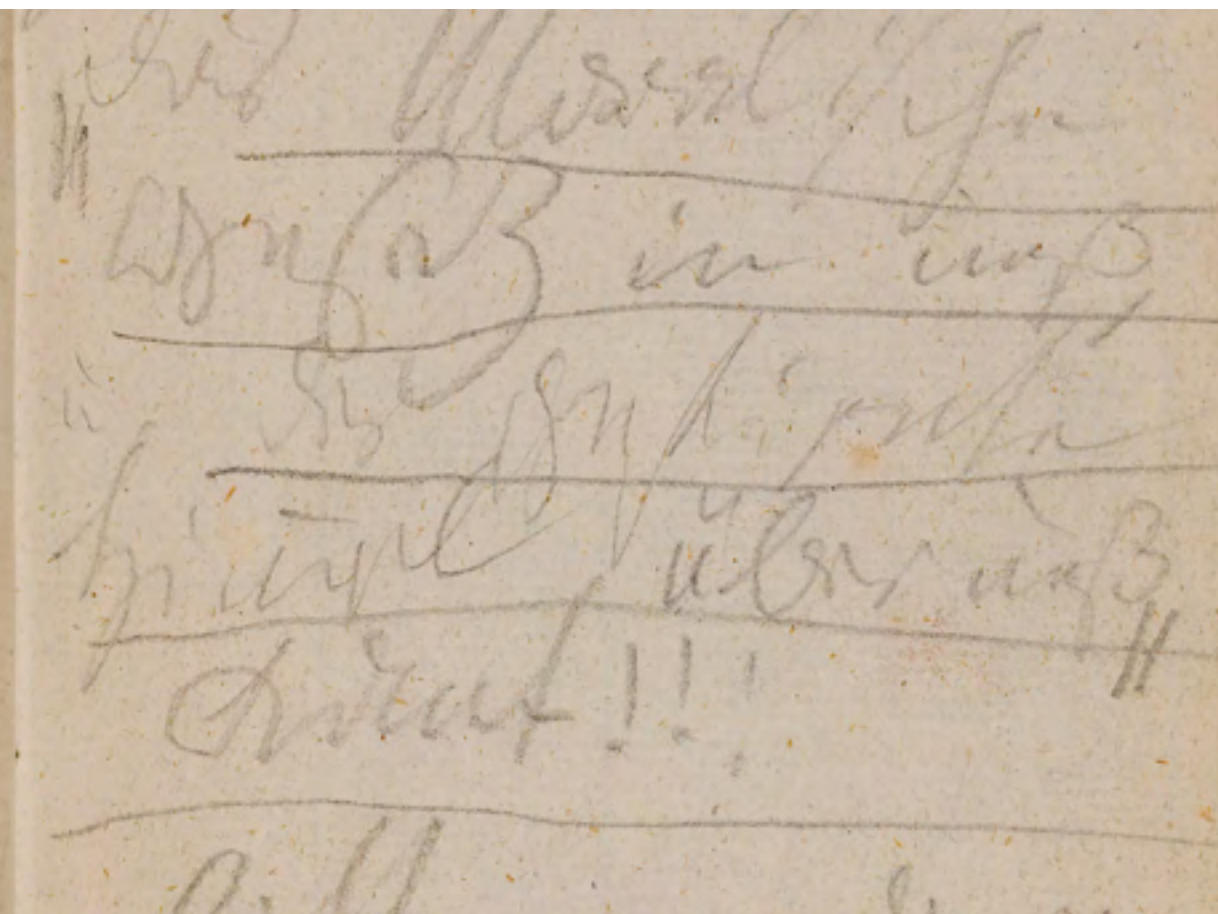 das Moralische
"Gesez in unß
u der gestirnte
Himel über unß"
Kant!!!